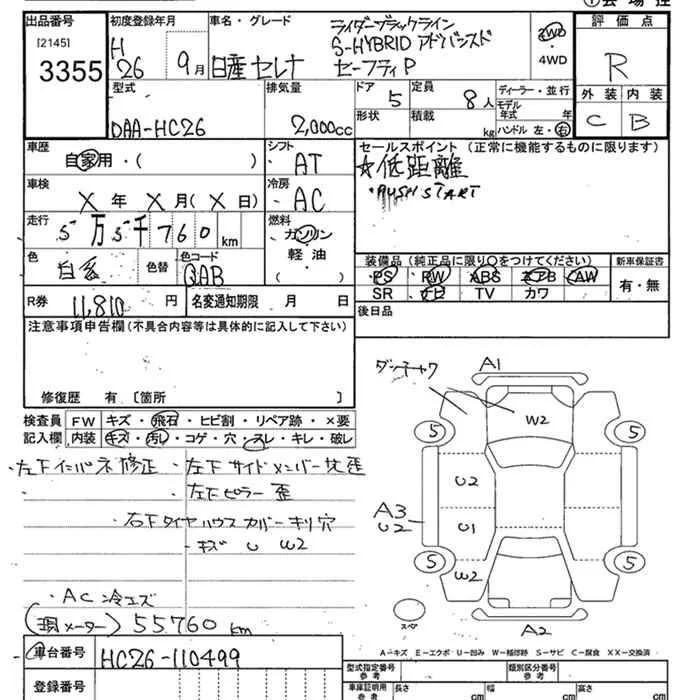 ①会場控
出品番号
[2145]
3355
初度登録年月
H
26
9月
車名・グレード
日産セレナ
ライダーブラックライン
S-HYBRID アドバンスド
セーフティP
2WD
・
4WD
評価点
R
外装 内装
C B
型式
DAA-HC26
排気量
2,000cc
ドア
5
定員
8人
形状
積載
kg
ディーラー・並行
モデル
年式 年
ハンドル 左・右
車歴
自家用・( )
シフト
AT
セールスポイント(正常に機能するものに限ります)
☆低距離
・PUSH START
車検
X 年 X 月( X 日)
冷房
AC
走行
5万5千760km
燃料
ガソリン
軽油
( )
色
白系
色替
色コード
QAB
装備品(純正品に限り○をつけてください)
PS RW ABS エアB AW
SR ナビ TV カワ
新車保証書
有・無
R券
11,810円
名変通知期限 月 日
後日品
注意事項申告欄(不具合内容等は具体的に記入して下さい)
修復歴 有〔箇所 〕
検査員
記入欄
FW キズ・飛石・ヒビ割・リペア跡・×要
内装 キズ・汚レ・コゲ・穴・スレ・キレ・破レ
・左下インパネ修正
・左下サイドメンバー
歪
・左下ピラー歪
右下タイヤハウスカバーキリ穴
・キズ U W2
・AC冷エズ
(現メーター) 55760km
車台番号
HC26-110499
登録番号
A1
W2
5
5
U2
A3
U2
U1
W2
5
5
スペア
A2
A-キズ E-エクボ U-凹み W-補修跡 S-サビ C-腐食 XX-交換済
型式指定番号
参考
類別区分番号
参考
車庫証明用
参考
長さ cm
幅 cm
高さ cm